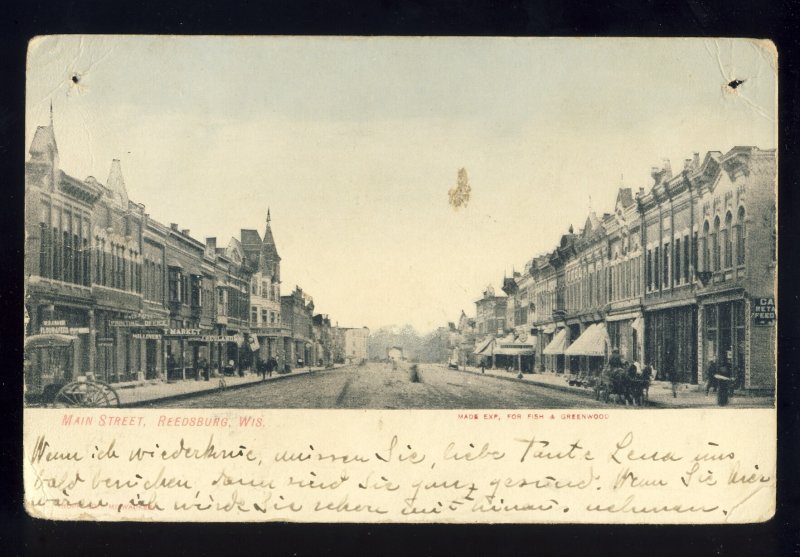 PRINTING OFFICE
MILLINERY
MARKET
CA
RETA
FEED
MAIN STREET, REEDSBURG, WIS.
MADE EXP, FOR FISH & GREENWOOD
Wenn ich wiederkme, müssen Sie, liebe Tante Lena uns
bald besuchen dann sind Sie ganz gesund. Wenn Sie hier
wären ich würde Sie sehen mit hinaus nehmen.
MILWAUKEE